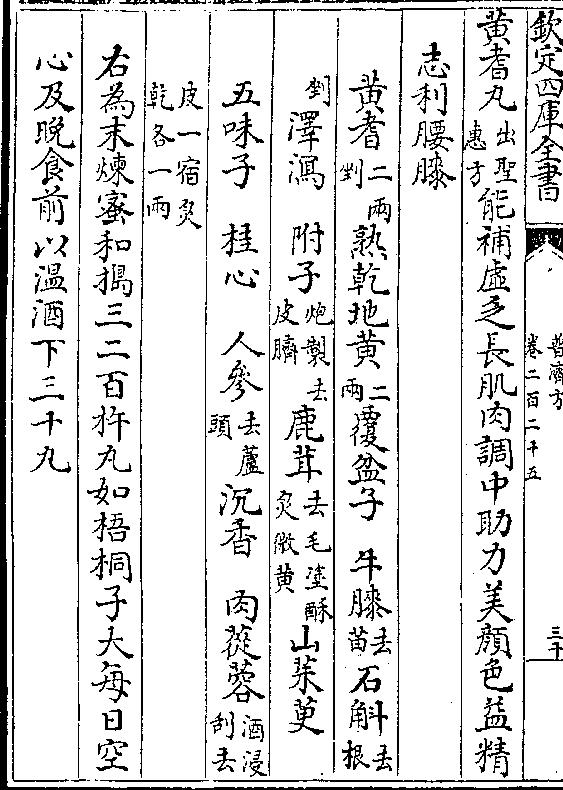 欽定四庫全書
普濟方
卷二百二十五
三十
黃耆丸出聖惠方能補虛乏長肌肉調中助力美顏色益精
志利腰膝
黃耆二兩剉熟乾地黃二兩覆盆子 牛膝去苗石斛去根
剉澤瀉 附子炮製去皮臍鹿茸去毛塗酥炙微黃山茱萸
五味子 桂心 人參去蘆頭沉香 肉蓯蓉酒浸刮去
皮一宿炙乾各一兩
右為末煉蜜和搗三二百杵丸如梧桐子大每日空
心及晚食前以溫酒下三十丸